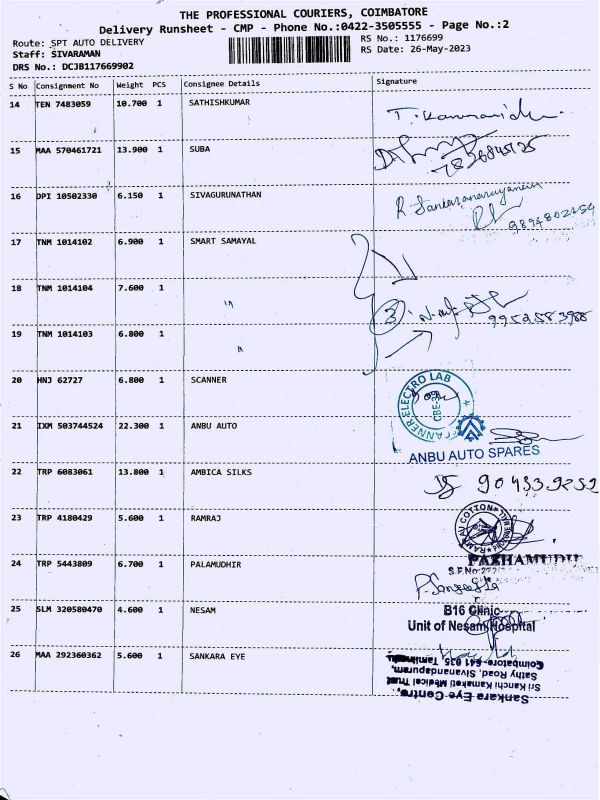 THE PROFESSIONAL COURIERS, COIMBATORE
Delivery Runsheet - CMP - Phone No.:0422-3505555 - Page No.:2
Route: SPT AUTO DELIVERY
RS No.: 1176699
Staff: SIVARAMAN
RS Date: 26-May-2023
DRS No.: DCJB117669902
S No Consignment No Weight PCS Consignee Details Signature
14 TEN 7483059 10.700 1 SATHISHKUMAR
15 MAA 570461721 13.900 1 SUBA
16 DPI 10502330 6.150 1 SIVAGURUNATHAN R Sankaranarayanan
9894802154
17 TNM 1014102 6.900 1 SMART SAMAYAL
18 TNM 1014104 7.600 1 "
3
9952583988
19 TNM 1014103 6.800 1 "
20 HNJ 62727 6.800 1 SCANNER
SCANNER ELECTRO LAB
21 IXM 503744524 22.300 1 ANBU AUTO
ANBU AUTO SPARES
22 TRP 6083061 13.800 1 AMBICA SILKS
23 TRP 4180429 5.600 1 RAMRAJ
RAMRAJ COTTON
24 TRP 5443809 6.700 1 PALAMUDHIR
PAZHAMUDU
S.F.No:277
25 SLM 320580470 4.600 1 NESAM
B16 Clinic
Unit of Nesam Hospital
26 MAA 292360362 5.600 1 SANKARA EYE
Sankara Eye Centre,
Sri Kanchi Kamakoti Medical Trust
Sathy Road, Sivanandapuram,
Coimbatore-641 035, Tamilnadu